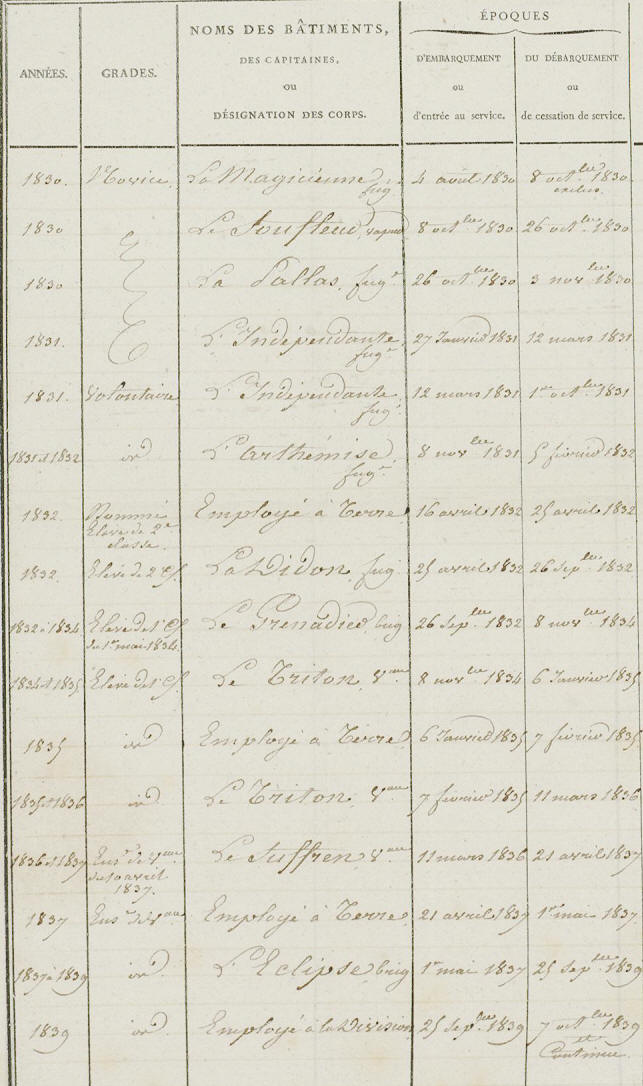 ANNÉES. GRADES. NOMS DES BÂTIMENTS, DES CAPITAINES, ou DÉSIGNATION DES CORPS. ÉPOQUES
D'EMBARQUEMENT ou d'entrée au service. DU DÉBARQUEMENT ou de cessation de service.
1830. Novice. La Magicienne frég. 4 août 1830 8 octbre 1830 exclus.
1830 Le Souffleur, vapeur 8 octbre 1830 26 octbre 1830
1830 La Pallas, frégte 26 octbre 1830 3 novbre 1830
1831. L'Indépendante, frégte 27 Janvier 1831 12 mars 1831
1831. Volontaire L'Indépendante, frégte 12 mars 1831 1er octbre 1831
1831 et 1832 id L'Arthémise, frégte 8 novbre 1831 5 février 1832
1832. Nommé Elève de 2e classe. Employé à Terre 16 avril 1832 25 avril 1832
1832. Elève de 2e Cl. La Didon, frég 25 avril 1832 26 sepbre 1832
1832 à 1834 Elève de 1e Cl. du 1er mai 1834. Le Grenadier, brig 26 sepbre 1832 8 novbre 1834
1834 et 1835 Elève de 1e Cl. Le Triton, Vau 8 novbre 1834 6 Janvier 1835
1835 id Employé à Terre. 6 Janvier 1835 7 février 1835
1835 et 1836 id Le Triton, Vau 7 février 1835 11 mars 1836
1836 et 1837 Ens. de Vau du 10 avril 1837. Le Suffren, Vau 11 mars 1836 21 avril 1837
1837 Ens. de Vau Employé à Terre. 21 avril 1837 1er mai 1837
1837 à 1839 id L'Eclipse, brig 1er mai 1837 25 sepbre 1839
1839 id Employé à la Division 25 sepbre 1839 7 octbre 1839 et Continue.